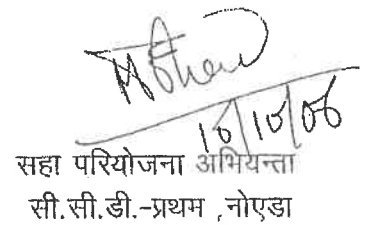 10/10/06
सहा परियोजना अभियन्ता
सी.सी.डी.-प्रथम ,नोएडा